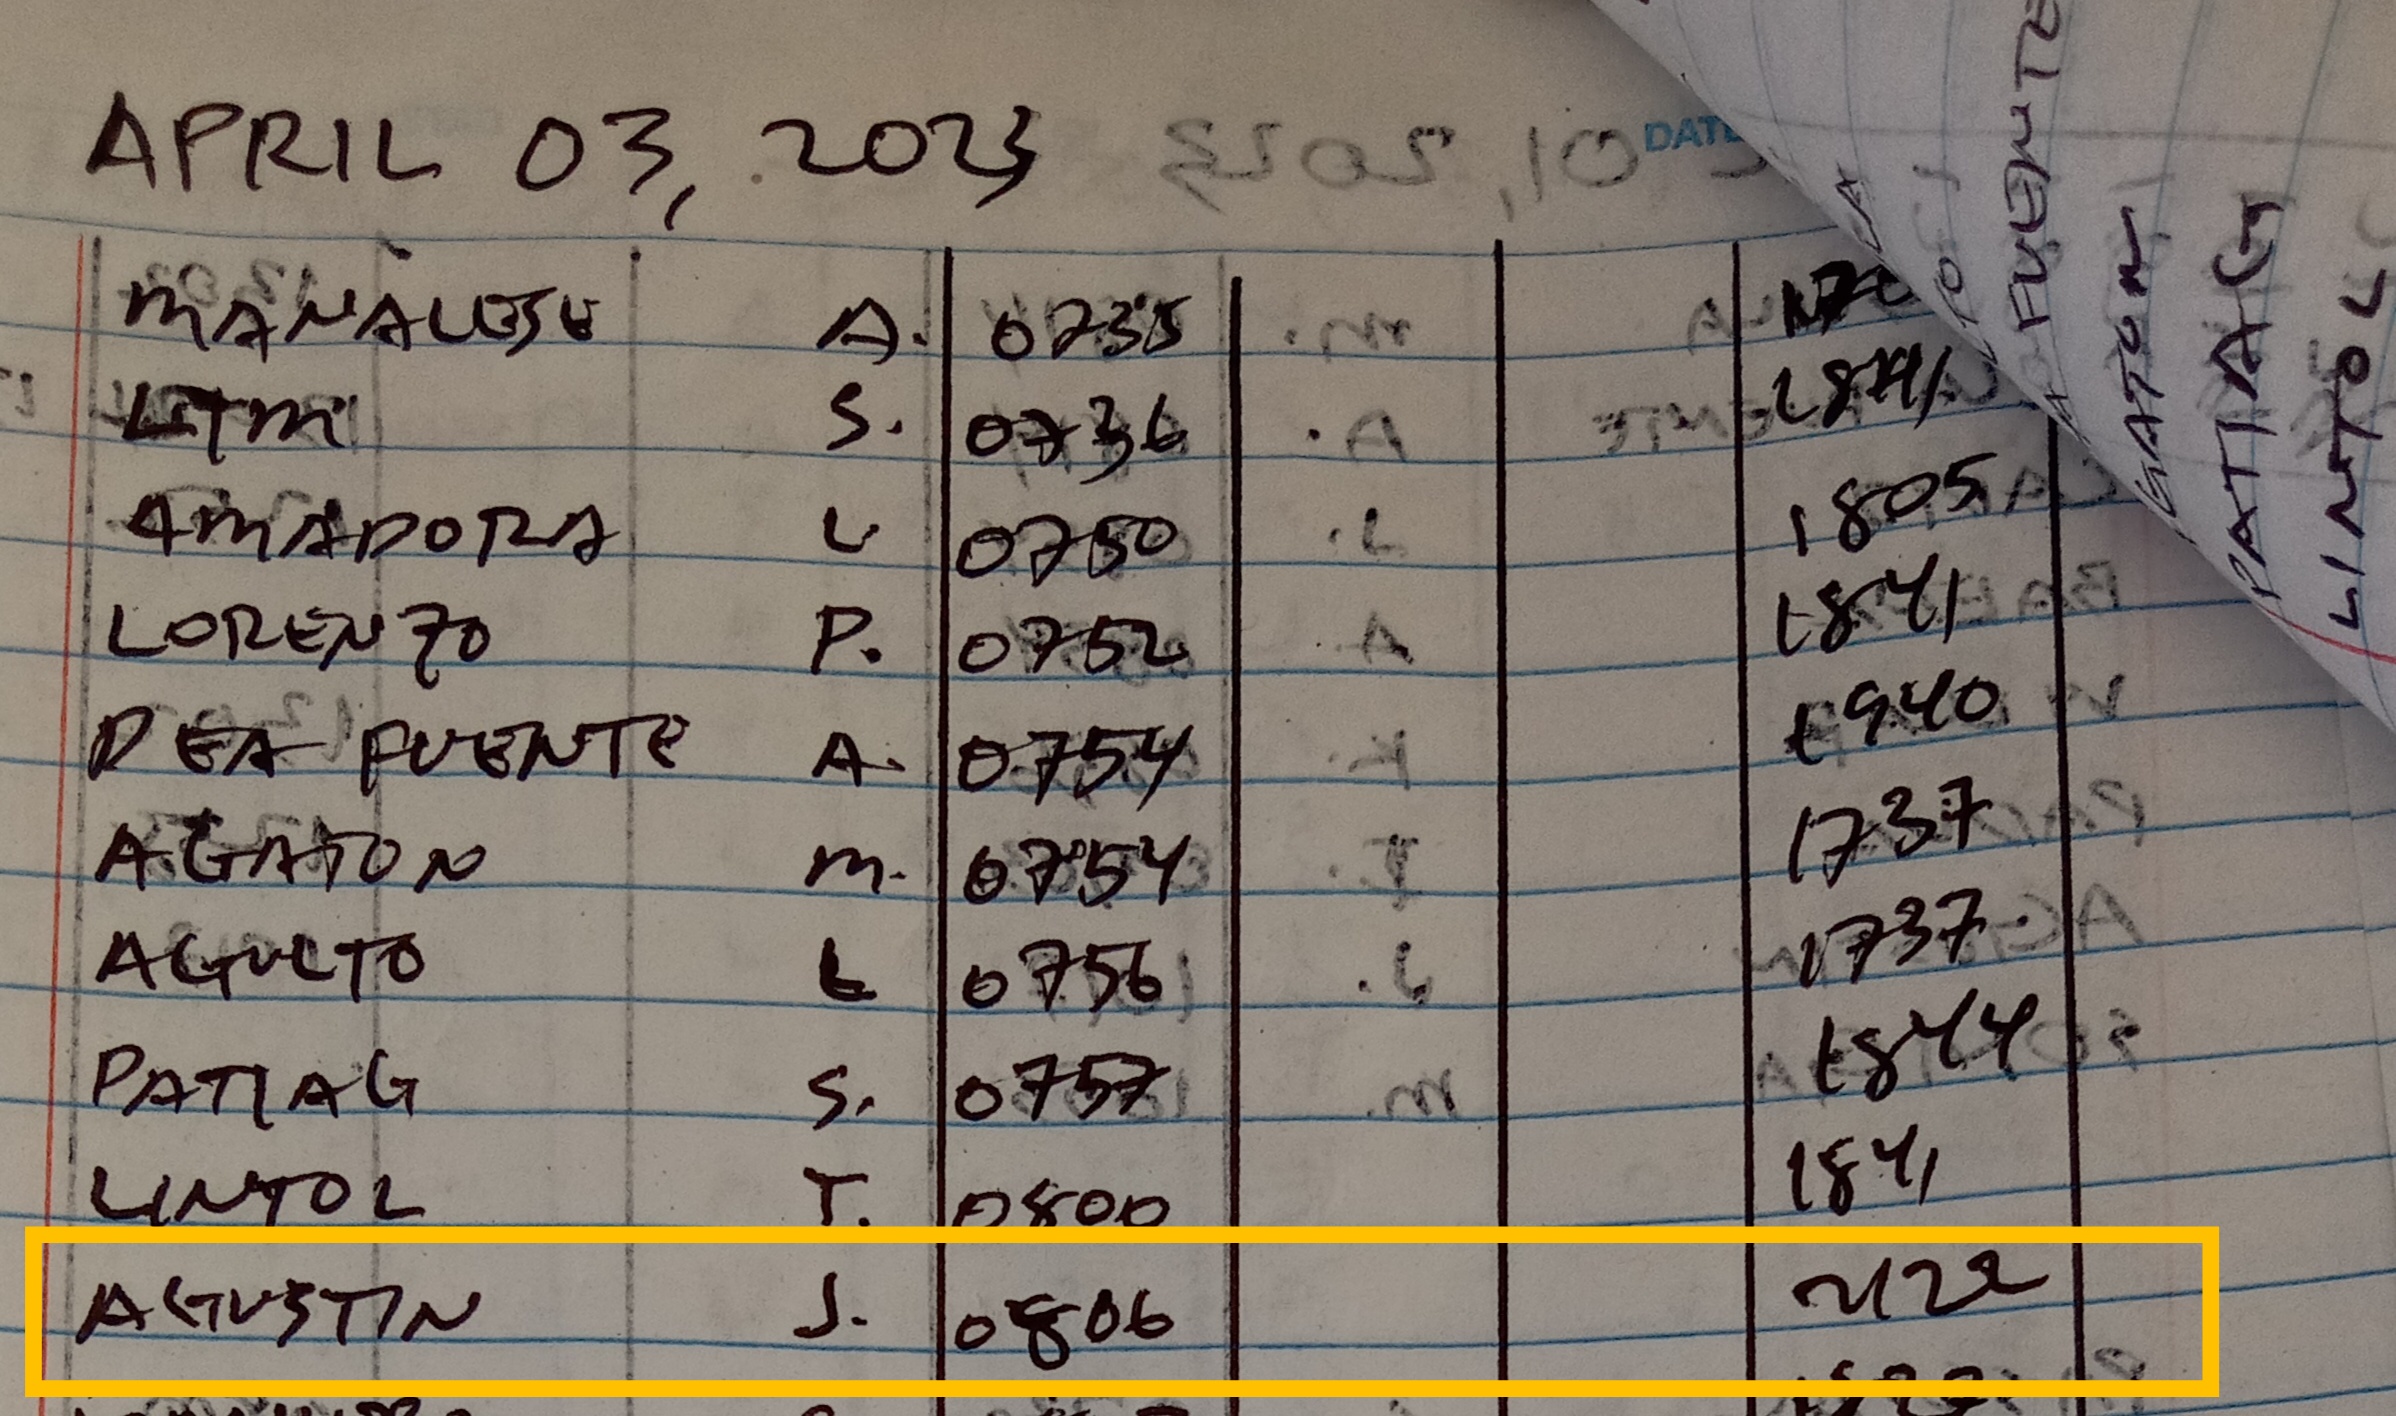 APRIL 03, 2023
DATE
MANALESE A. 0735
S. 0736 1841
AMADORA L 0750 1805
LORENZO P. 0752 1841
DEA FUENTE A. 0754 1940
AGATON M. 0754 1737
AGULTO L 0756 1737
PATIAG S. 0757 1844
LINTOL T. 0800 1841
AGUSTIN J. 0806 2122
FUENTE
GATON
PATIAG
LINTOL